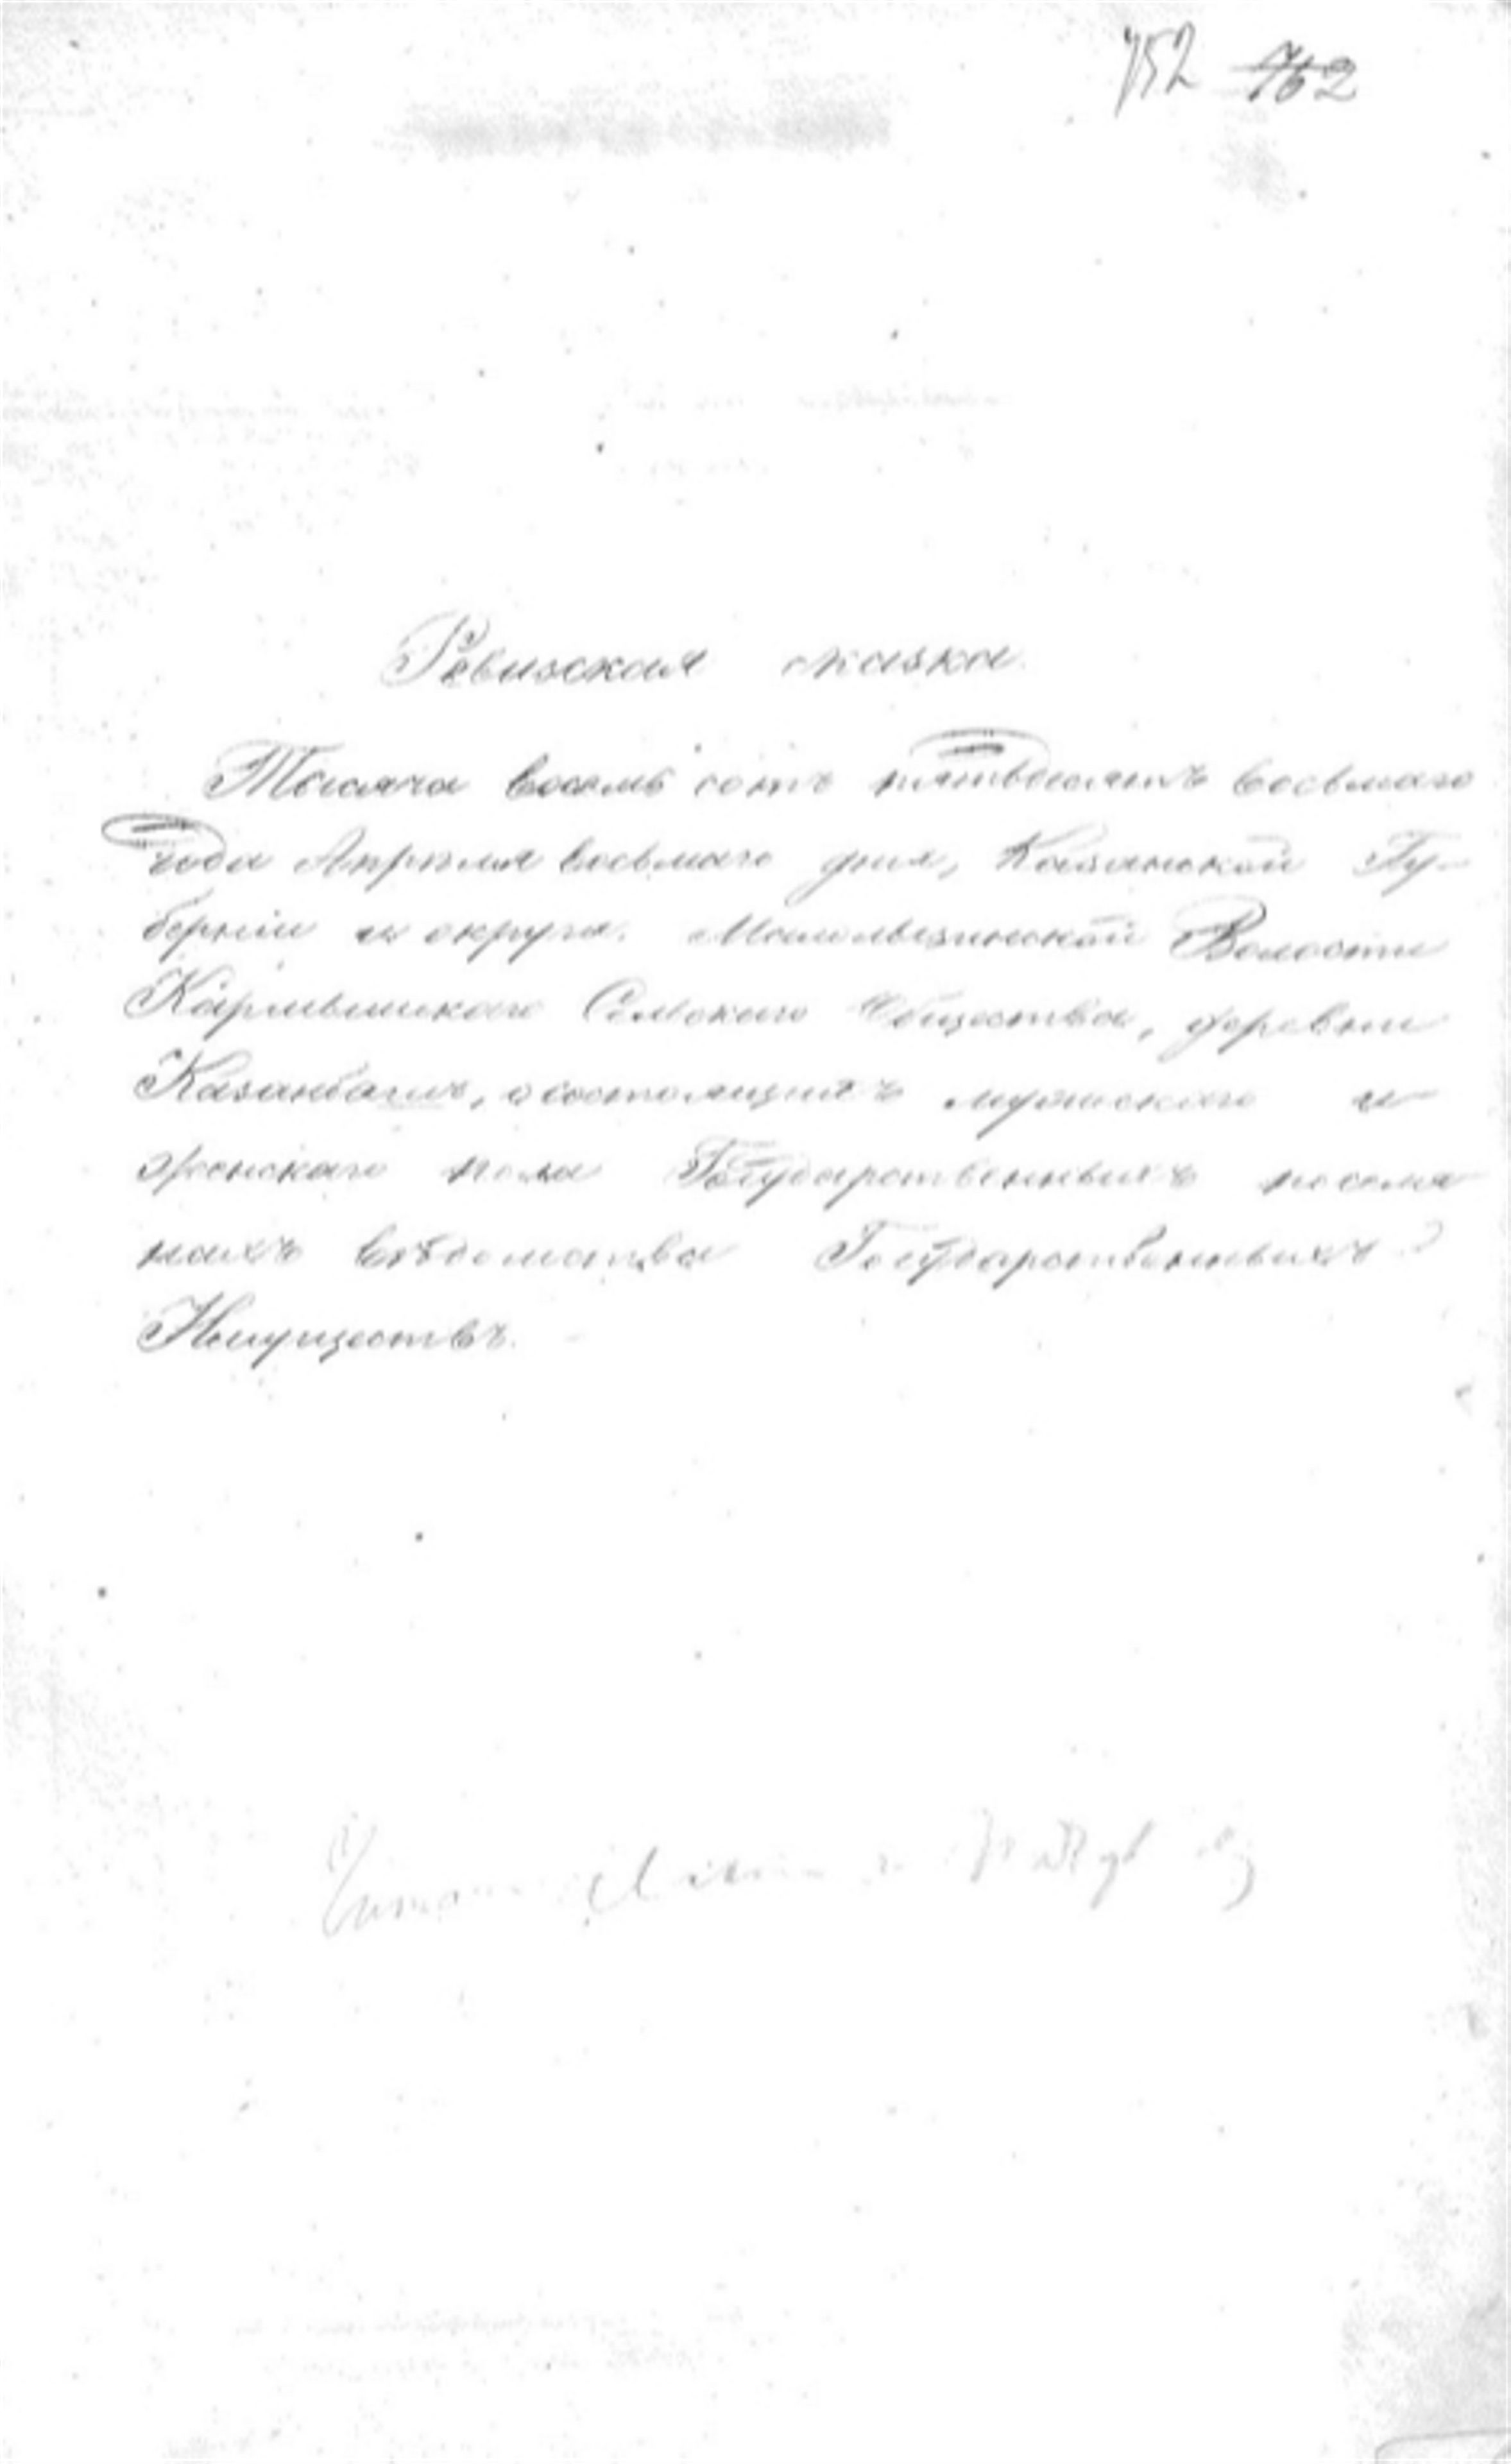 752 762
Ревизская сказка
Тысяча восемь сотъ пятьдесятъ восьмаго
года Апрѣля восьмаго дня, Казанской Гу-
берніи и округа. Волости
Сельскаго Общества, деревни
Казанбашъ, о состоящихъ мужескаго и
женскаго пола Государственныхъ поселя
нахъ вѣдомства Государственныхъ
Имуществъ.